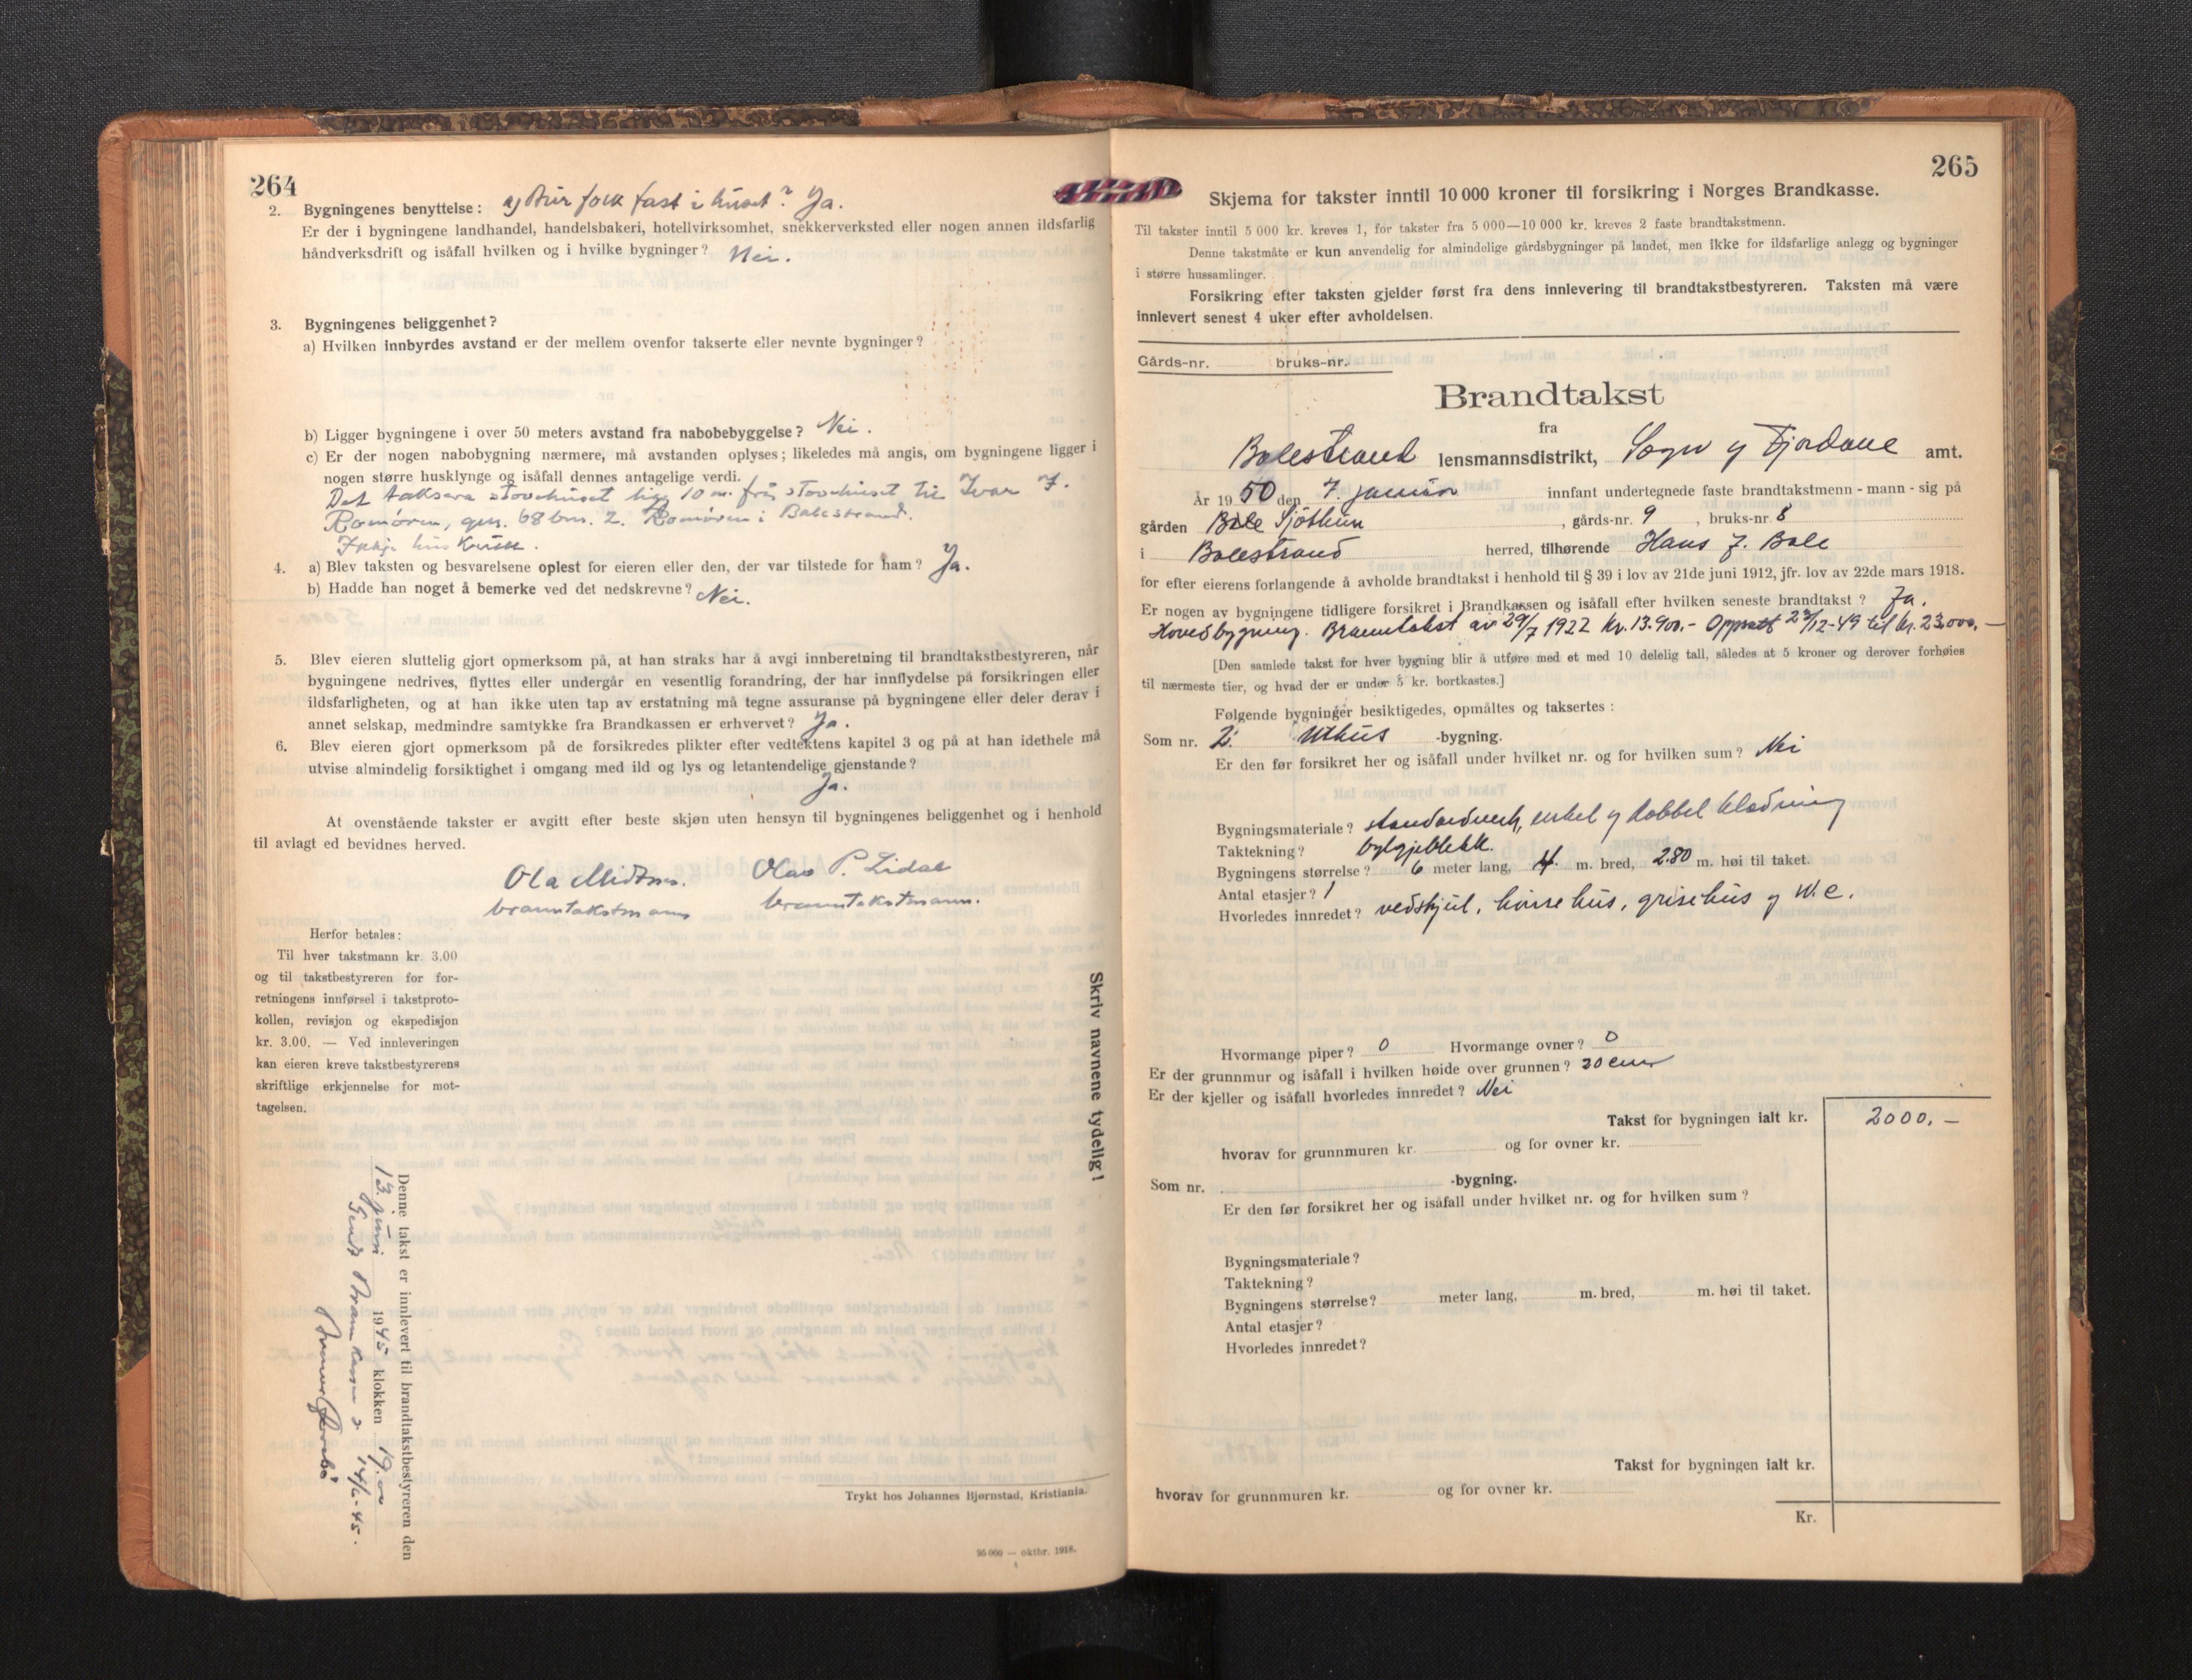 264
2. Bygningenes benyttelse: a) Bur folk fast i huset? Ja.
Er der i bygningene landhandel, handelsbakeri, hotellvirksomhet, snekkerverksted eller nogen annen ildsfarlig
håndverksdrift og isåfall hvilken og i hvilke bygninger? Nei.
3. Bygningenes beliggenhet?
a) Hvilken innbyrdes avstand er der mellem ovenfor takserte eller nevnte bygninger?
b) Ligger bygningene i over 50 meters avstand fra nabobebyggelse? Nei.
c) Er der nogen nabobygning nærmere, må avstanden oplyses; likeledes må angis, om bygningene ligger i
nogen større husklynge og isåfall dennes antagelige verdi.
Det taksera stovehuset ligg 10 m. frå stovehuset til Ivar J.
Romøren, gnr. 68 bnr. 2. Romøren i Balestrand.
Ikkje hus
4. a) Blev taksten og besvarelsene oplest for eieren eller den, der var tilstede for ham? Ja.
b) Hadde han noget å bemerke ved det nedskrevne? Nei.
5. Blev eieren sluttelig gjort opmerksom på, at han straks har å avgi innberetning til brandtakstbestyreren, når
bygningene nedrives, flyttes eller undergår en vesentlig forandring, der har innflydelse på forsikringen eller
ildsfarligheten, og at han ikke uten tap av erstatning må tegne assuranse på bygningene eller deler derav i
annet selskap, medmindre samtykke fra Brandkassen er erhvervet? Ja.
6. Blev eieren gjort opmerksom på de forsikredes plikter efter vedtektens kapitel 3 og på at han idethele må
utvise almindelig forsiktighet i omgang med ild og lys og letantendelige gjenstande?
Ja.
At ovenstående takster er avgitt efter beste skjøn uten hensyn til bygningenes beliggenhet og i henhold
til avlagt ed bevidnes herved.
Ola Midtnes. Olav P. Lidal
branntakstmann branntakstmann.
Herfor betales:
Til hver takstmann kr. 3.00
og til takstbestyreren for for-
retningens innførsel i takstproto-
kollen, revisjon og ekspedisjon
kr. 3.00. — Ved innleveringen
kan eieren kreve takstbestyrerens
skriftlige erkjennelse for mot-
tagelsen.
Skriv navnene tydelig!
Denne takst er innlevert til brandtakstbestyreren den
13. juni 1945 klokken 19.00
Sendt Brannkassen 14/6-45.
Trykt hos Johannes Bjørnstad, Kristiania.
95 000 — oktbr. 1918.
265
Skjema for takster inntil 10 000 kroner til forsikring i Norges Brandkasse.
Til takster inntil 5 000 kr. kreves 1, for takster fra 5 000—10 000 kr. kreves 2 faste brandtakstmenn.
Denne takstmåte er kun anvendelig for almindelige gårdsbygninger på landet, men ikke for ildsfarlige anlegg og bygninger
i større hussamlinger.
Forsikring efter taksten gjelder først fra dens innlevering til brandtakstbestyreren. Taksten må være
innlevert senest 4 uker efter avholdelsen.
Gårds-nr. bruks-nr.
Brandtakst
fra
Balestrand lensmannsdistrikt, Sogn og Fjordane amt.
År 1950 den 7. januar innfant undertegnede faste brandtakstmenn - mann - sig på
gården Bale Sjøthun, gårds-nr. 9, bruks-nr. 8
i Balestrand herred, tilhørende Hans J. Bale
for efter eierens forlangende å avholde brandtakst i henhold til § 39 i lov av 21de juni 1912, jfr. lov av 22de mars 1918.
Er nogen av bygningene tidligere forsikret i Brandkassen og isåfall efter hvilken seneste brandtakst? Ja.
Hovedbygning. Branntakst av 29/7 1922 kr. 13.900,- Oppsatt 23/12-49 til kr. 23.000,-
[Den samlede takst for hver bygning blir å utføre med et med 10 delelig tall, således at 5 kroner og derover forhøies
til nærmeste tier, og hvad der er under 5 kr. bortkastes.]
Følgende bygninger besiktigedes, opmåltes og taksertes:
Som nr. 2. Uthus -bygning.
Er den før forsikret her og isåfall under hvilket nr. og for hvilken sum? Nei
Bygningsmateriale? standardverk, enkel og dobbel kledning
Taktekning? bylgjeblekk.
Bygningens størrelse? 6 meter lang, 4 m. bred, 2.80 m. høi til taket.
Antal etasjer? 1
Hvorledes innredet? vedskjul, hønsehus, grisehus og W.C.
Hvormange piper? 0 Hvormange ovner? 0
Er der grunnmur og isåfall i hvilken høide over grunnen? 30 cm
Er der kjeller og isåfall hvorledes innredet? Nei
Takst for bygningen ialt kr. 2000,-
hvorav for grunnmuren kr. og for ovner kr.
Som nr. -bygning.
Er den før forsikret her og isåfall under hvilket nr. og for hvilken sum?
Bygningsmateriale?
Taktekning?
Bygningens størrelse? meter lang, m. bred, m. høi til taket.
Antal etasjer?
Hvorledes innredet?
Takst for bygningen ialt kr.
hvorav for grunnmuren kr. og for ovner kr.
Kr.